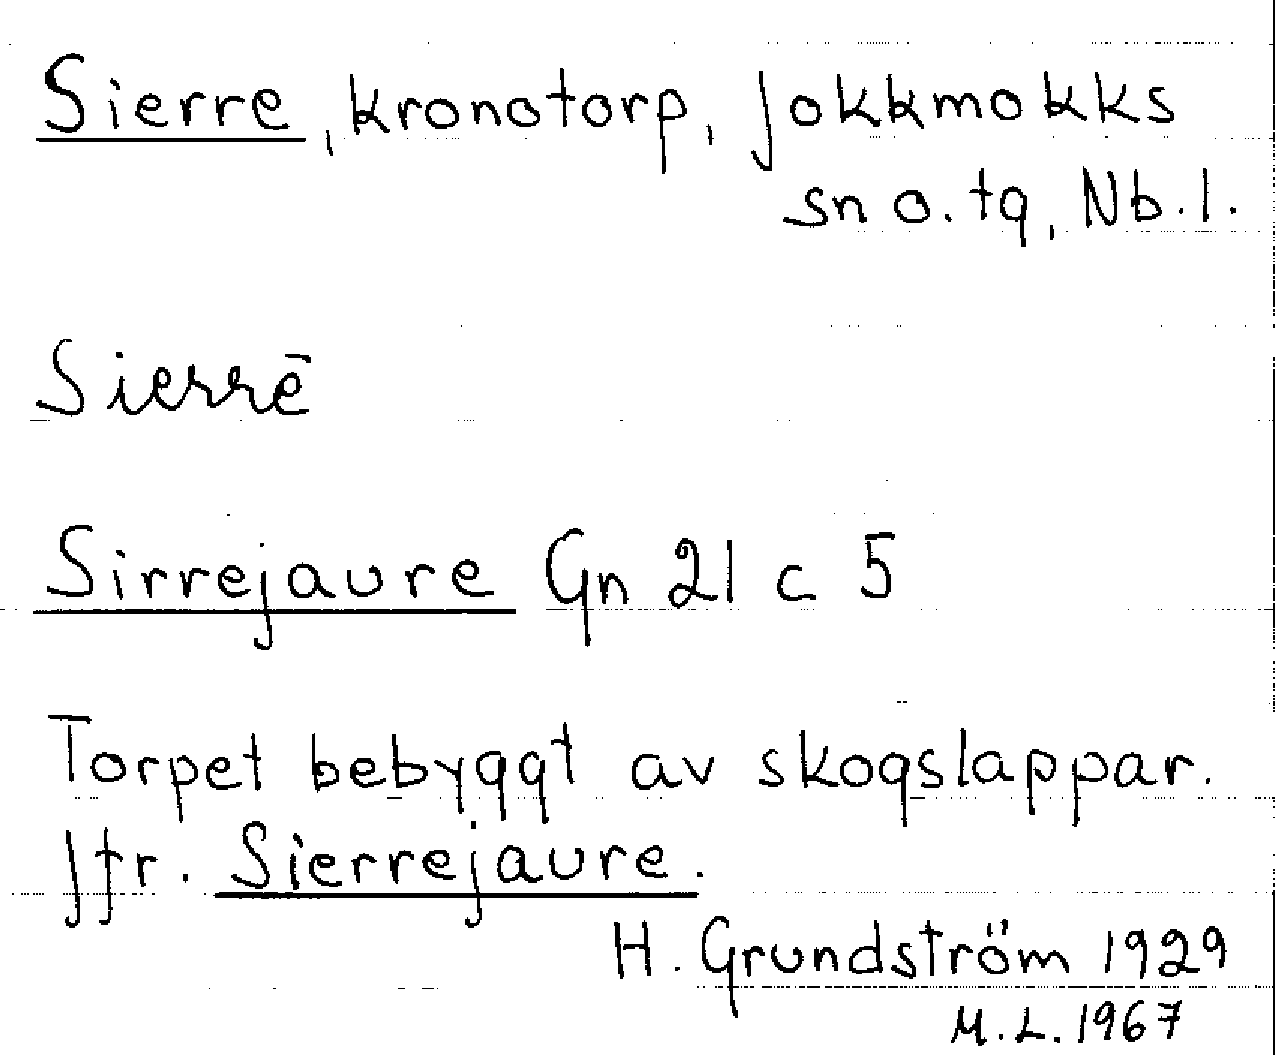 Sierre, kronotorp, Jokkmokks
sn o. tg, Nb. l.
Sierrē
Sirrejaure Gn 21 c 5
Torpet bebyggt av skogslappar.
Jfr. Sierrejaure.
H. Grundström 1929
M. L. 1967